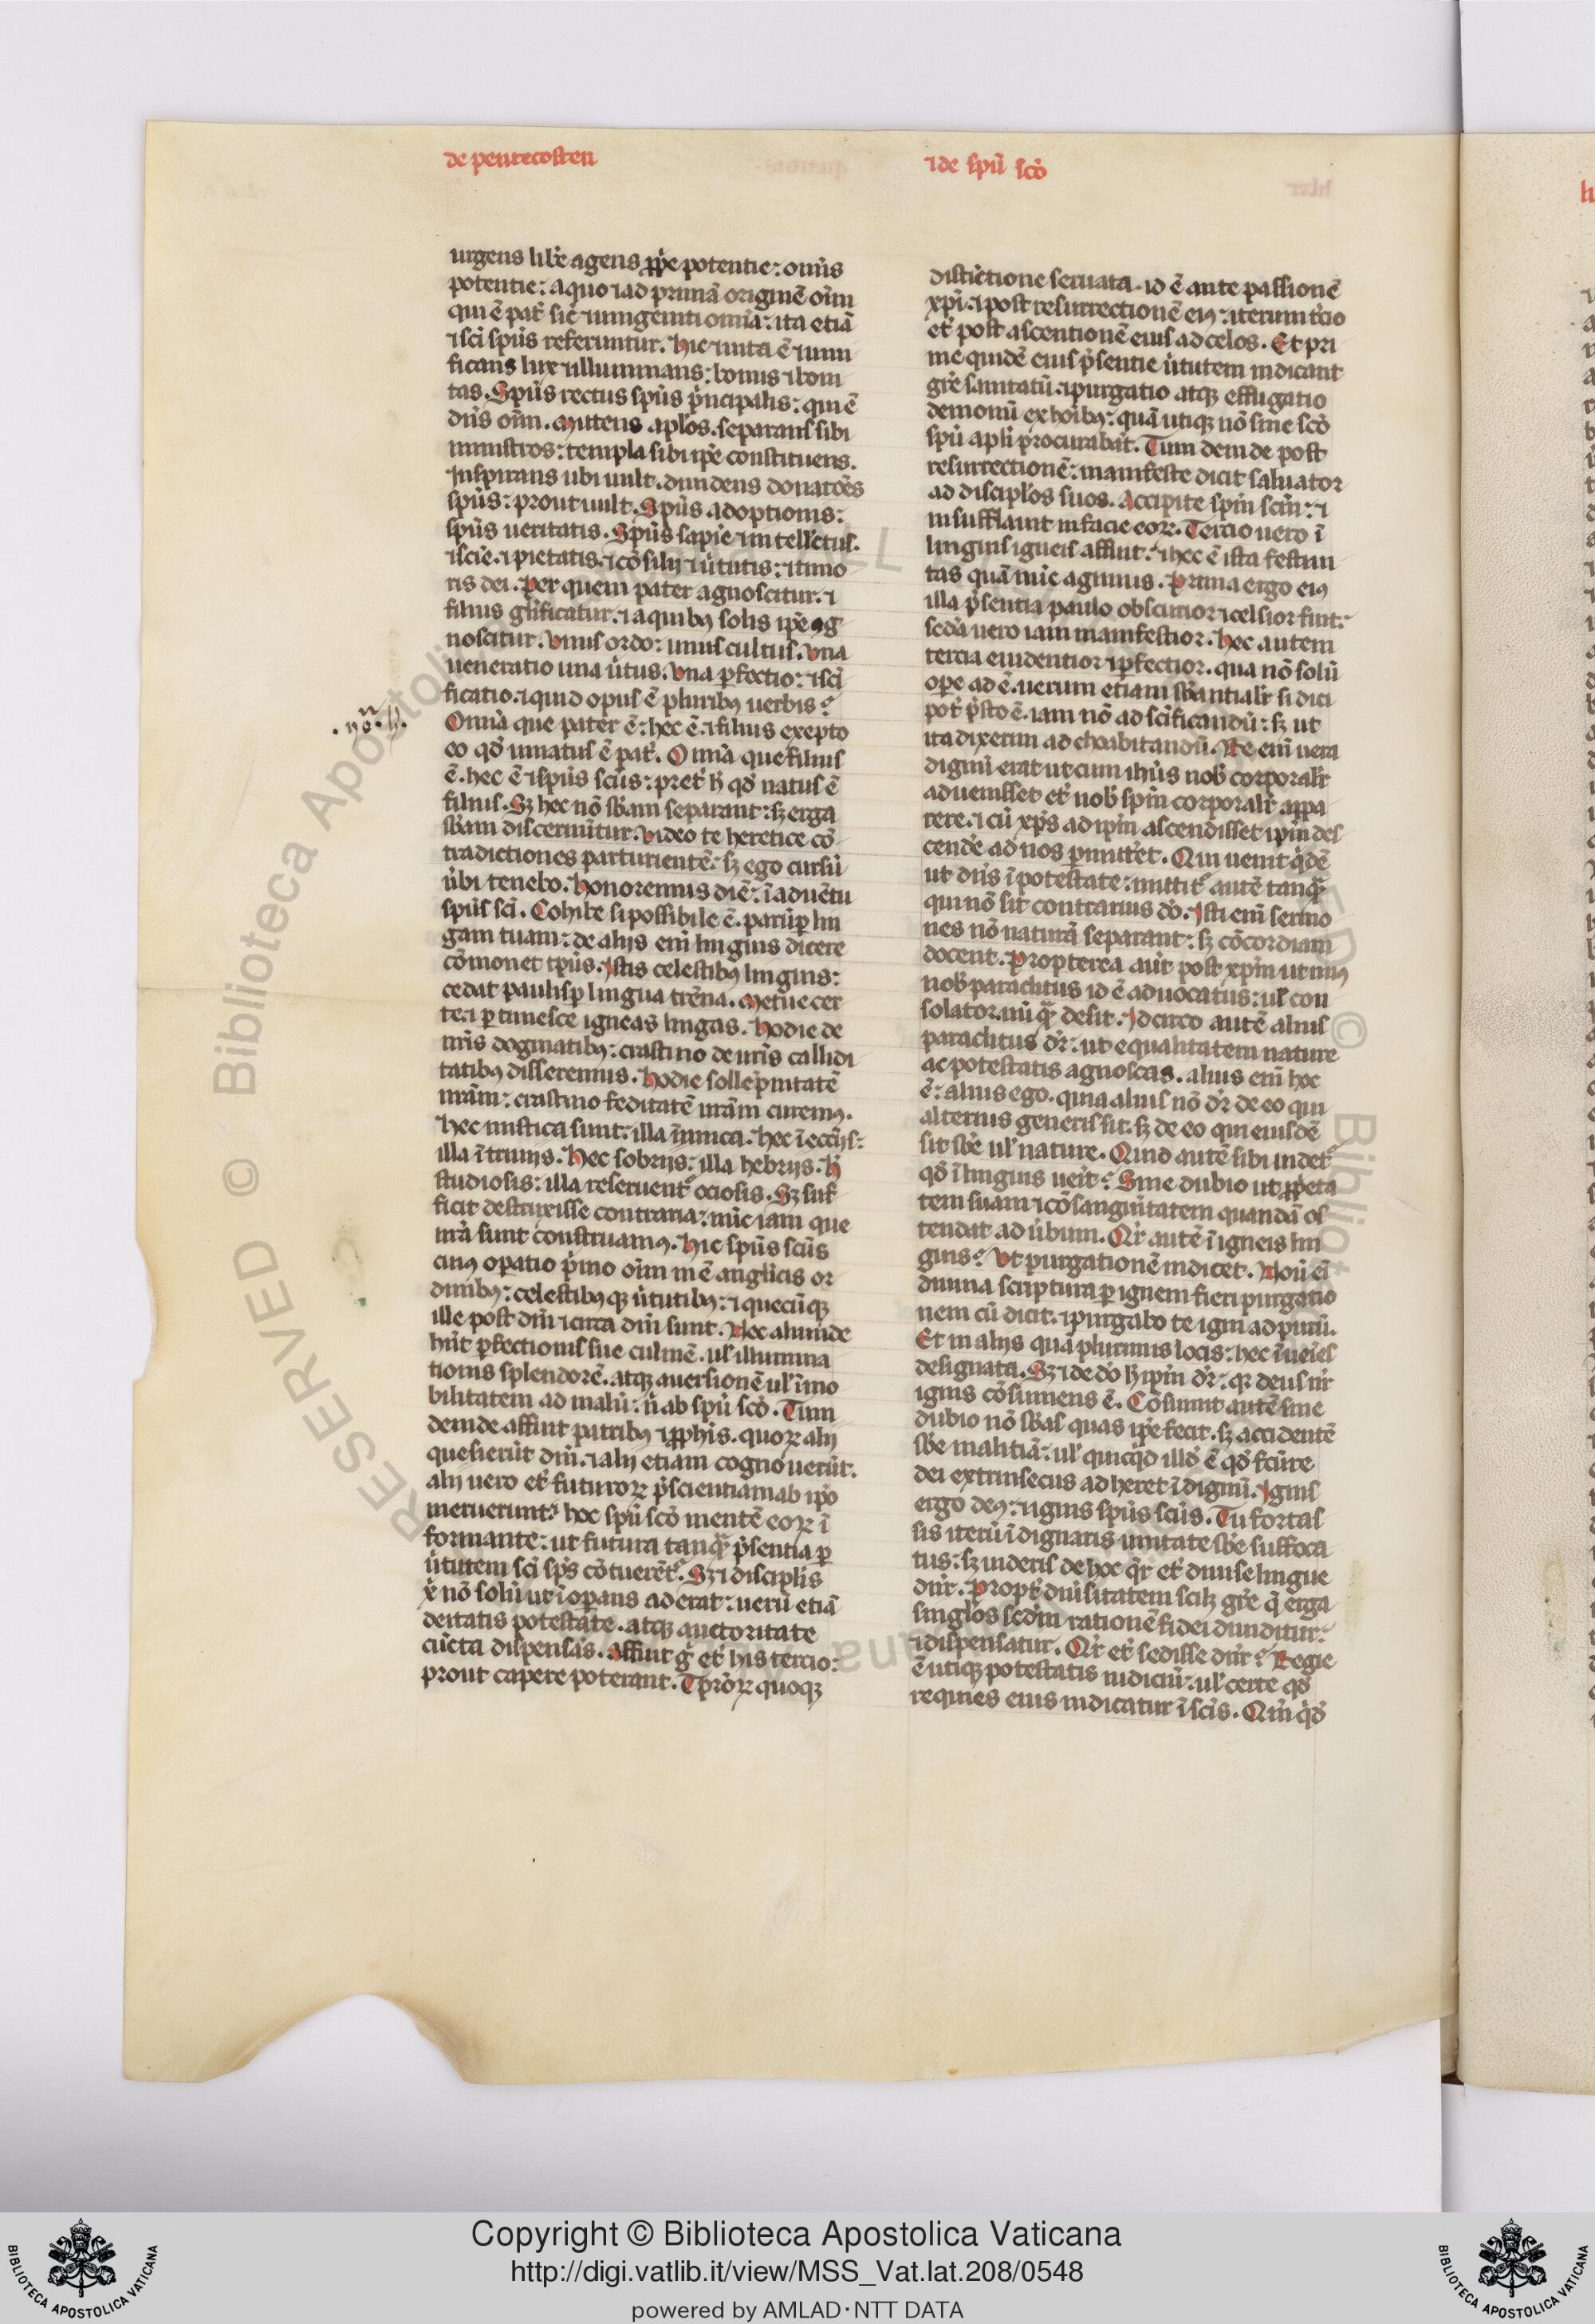 de pentecosten
⁊ de spū scō
urgens lib'e agens ꝓp'e potentie: om̄is
potentie: a quo ⁊ ad primā originē oīm
qui ē pat' sic' unigeniti omīa: ita etiā
⁊ sci spūs referuntur. Hic uita ē ⁊ uiui
ficans lux ⁊ illuminans: bonus ⁊ boni
tas. Spūs rectus spūs p'ncipalis: qui ē
dn̄s oīm. Mittens apl'os. separans sibi
ministros: templa sibi ip̄e constituens.
Inspirans ubi uult. diuidens donatōes
spūs: prout uult. Spūs adoptionis:
spūs ueritatis. Spūs sapīe ⁊ intell'ectus.
⁊ scīe. ⁊ pietatis. ⁊ cōsilij ⁊ u'tutis: ⁊ timo
ris dei. Per quem pater agnoscitur. ⁊
filius gl'ificatur. ⁊ a quibꝰ solis ip̄e ag
noscitur. Unus ordo: unus cultus. Una
ueneratio una u'tus. Una ꝑfectio: ⁊ scī
ficatio. ⁊ quid opus ē pluribꝰ uerbis?
.no͞. h̄.
Omīa que pater ē: hec ē. ⁊ filius exepto
eo qd' innatus ē pat'. Omīa que filius
ē. hec ē ⁊ spūs scūs: pret' h' qd' natus ē
filius. Sꝫ hec nō sb'am separant: sꝫ erga
sb'am discernūtur. Uideo te heretice cō
tradictiones parturientē: sꝫ ego cursū
u'bi tenebo. Honoremus diē: ī aduētu
spūs sci. Cohibe si possibile ē. parūꝑ lin
gam tuam: de alijs enī linguis dicere
cōmonet tp̄us. Istis celestibꝰ linguis:
cedat paulisꝑ lingua tr'ena. Metue cer
te. ⁊ ꝑtimesce igneas lingas. Hodie de
nr̄is dogmatibꝰ: crastino de ur̄is callidi
tatibꝰ disseremus. Hodie sollēpnitatē
nr̄am: crastino feditatē ur̄am curemꝰ.
Hec mistica sunt: illa īmica. Hec ī ecc'ijs:
illa ī triuijs. Hec sobrijs: illa hebrijs. h'
studiosis: illa reseruent' ociosis. Sꝫ suf
ficit destruxisse contraria: nūc iam que
nr̄a sunt construamꝰ. Hic spūs scūs
cuiꝰ oꝑatio p'mo oīm in ē anglicis or
dinibꝰ: celestibꝰqꝫ u'tutibꝰ: ⁊ quecūqꝫ
ille post dm̄ ⁊ circa dm̄ sunt. Nec aliunde
hn̄t ꝑfectionis sue culmē. ul' illumina
tionis splendorē. atqꝫ auersionē ul' īmo
bilitatem ad malū: n' ab spū scō. Tum
deinde affuit patribꝰ ⁊ ꝓphīs. quoꝝ alij
quesierūt dm̄. ⁊ alij etiam cognouerūt.
alij uero et' futuroꝝ p'scientiam ab ip̄o
meruerunt: hoc spū scō mentē eoꝝ ī
formante: ut futura tanqꝫ p'sentia ꝑ
u'tutem sci sp̄s cōtuerēt'. Sꝫ ⁊ discipl'is
x̄ nō solū ut ī oꝑans aderat: uerū etiā
deitatis potestate. atqꝫ auctoritate
cūcta dispensās. Affuit g' et' his tercio:
prout capere poterant. Tp̄roꝝ quoqꝫ
distīctione seruata. id ē ante passionē
xp̄i. ⁊ post resurrectionē eiꝰ: iterum t'cio
et' post ascentionē eius ad celos. Et pri
me quidē eius p'sentie u'tutem indicant
gr'e sanitatū. ⁊ purgatio atqꝫ effugatio
demonū ex hoībꝰ: quā utiqꝫ nō sine scō
spū apl'i procurabāt. Tum deinde post
resurrectionē: manifeste dicit saluator
ad discipl'os suos. Accipite spīm scm̄: ⁊
insufflauit in facie eoꝝ. Tercio uero ī
linguis igneis affuit: ⁊ hec ē ista festiui
tas quā nūc agimus. Prima ergo eiꝰ
illa p'sentia paulo obscurior ⁊ celsior fuit:
sed'a uero iam manifestior. Hec autem
tercia euidentior ⁊ ꝑfectior. qua nō solū
ope ad ē. uerum etiam sb'antialit' si dici
pōt p'sto ē. iam nō ad scīficandū: sꝫ ut
ita dixerim ad choabitandū. Re enī uera
dignū erat ut cum ihūs nob' corporalit'
aduenisset et' nob' spīm corporalit' appa
rere. ⁊ cū xp̄s ad ip̄m ascendisset ip̄m des
cend'e ad nos ꝑmitt'et. Qui uenit q'dē
ut dn̄s ī potestate: mittit' autē tanqꝫ
qui nō sit contrarius dō. Isti enī sermo
nes nō naturā separant: sꝫ cōcordiam
docent. Propterea aūt post xp̄m ut unꝰ
nob' paraclitus id ē aduocatus: ul' con
solator. nūqꝫ desit. Idcirco autē alius
paraclitus dr̄: ut equalitatem nature
ac potestatis agnoscas. alius enī hoc
ē: alius ego. quia alius nō dr̄ de eo qui
alterius generis sit: sꝫ de eo qui eiusdē
sit sb'e ul' nature. Quid autē sibi uidet'
qd' ī linguis uēit? Sine dubio ut ꝓp'eta
tem suam ⁊ cōsanguītatem quandā os
tendat ad u'bum. Qr̄ autē ī igneis lin
guis? Ut purgationē indicet. Nouū eī
diuina scriptura ꝑ ignem fieri purgatio
nem cū dicit. ⁊ purgabo te igni ad purū.
Et in alijs quā plurimis locis: hec īueīes
designata. Sꝫ ⁊ de dō h' ip̄m dr̄: qꝛ deus nr̄
ignis cōsumens ē. Cōsumit autē sine
dubio nō sb'as quas ip̄e fecit. sꝫ accidentē
sb'e malitiā: ul' quicq'd illd' ē qd' fc̄ure
dei extrinsecus adheret īdignū. Ignis
ergo deꝰ: ⁊ ignis spūs scūs. Tu fortas
sis iterū īdignaris unitate sb'e suffoca
tus: sꝫ uideris de hoc qr̄ et' diuise lingue
dn̄r. Propt' diu'sitatem scilꝫ gr'e q̄ erga
singl'os scd'm rationē fidei diuiditur:
⁊ dispensatur. Qr̄ et' sedisse dn̄r? Regie
ē utiqꝫ potestatis iudiciū: ul' certe qd'
requies eius indicatur ī scīs. Qm̄ q'd'
Copyright © Biblioteca Apostolica Vaticana
http://digi.vatlib.it/view/MSS_Vat.lat.208/0548
powered by AMLAD·NTT DATA